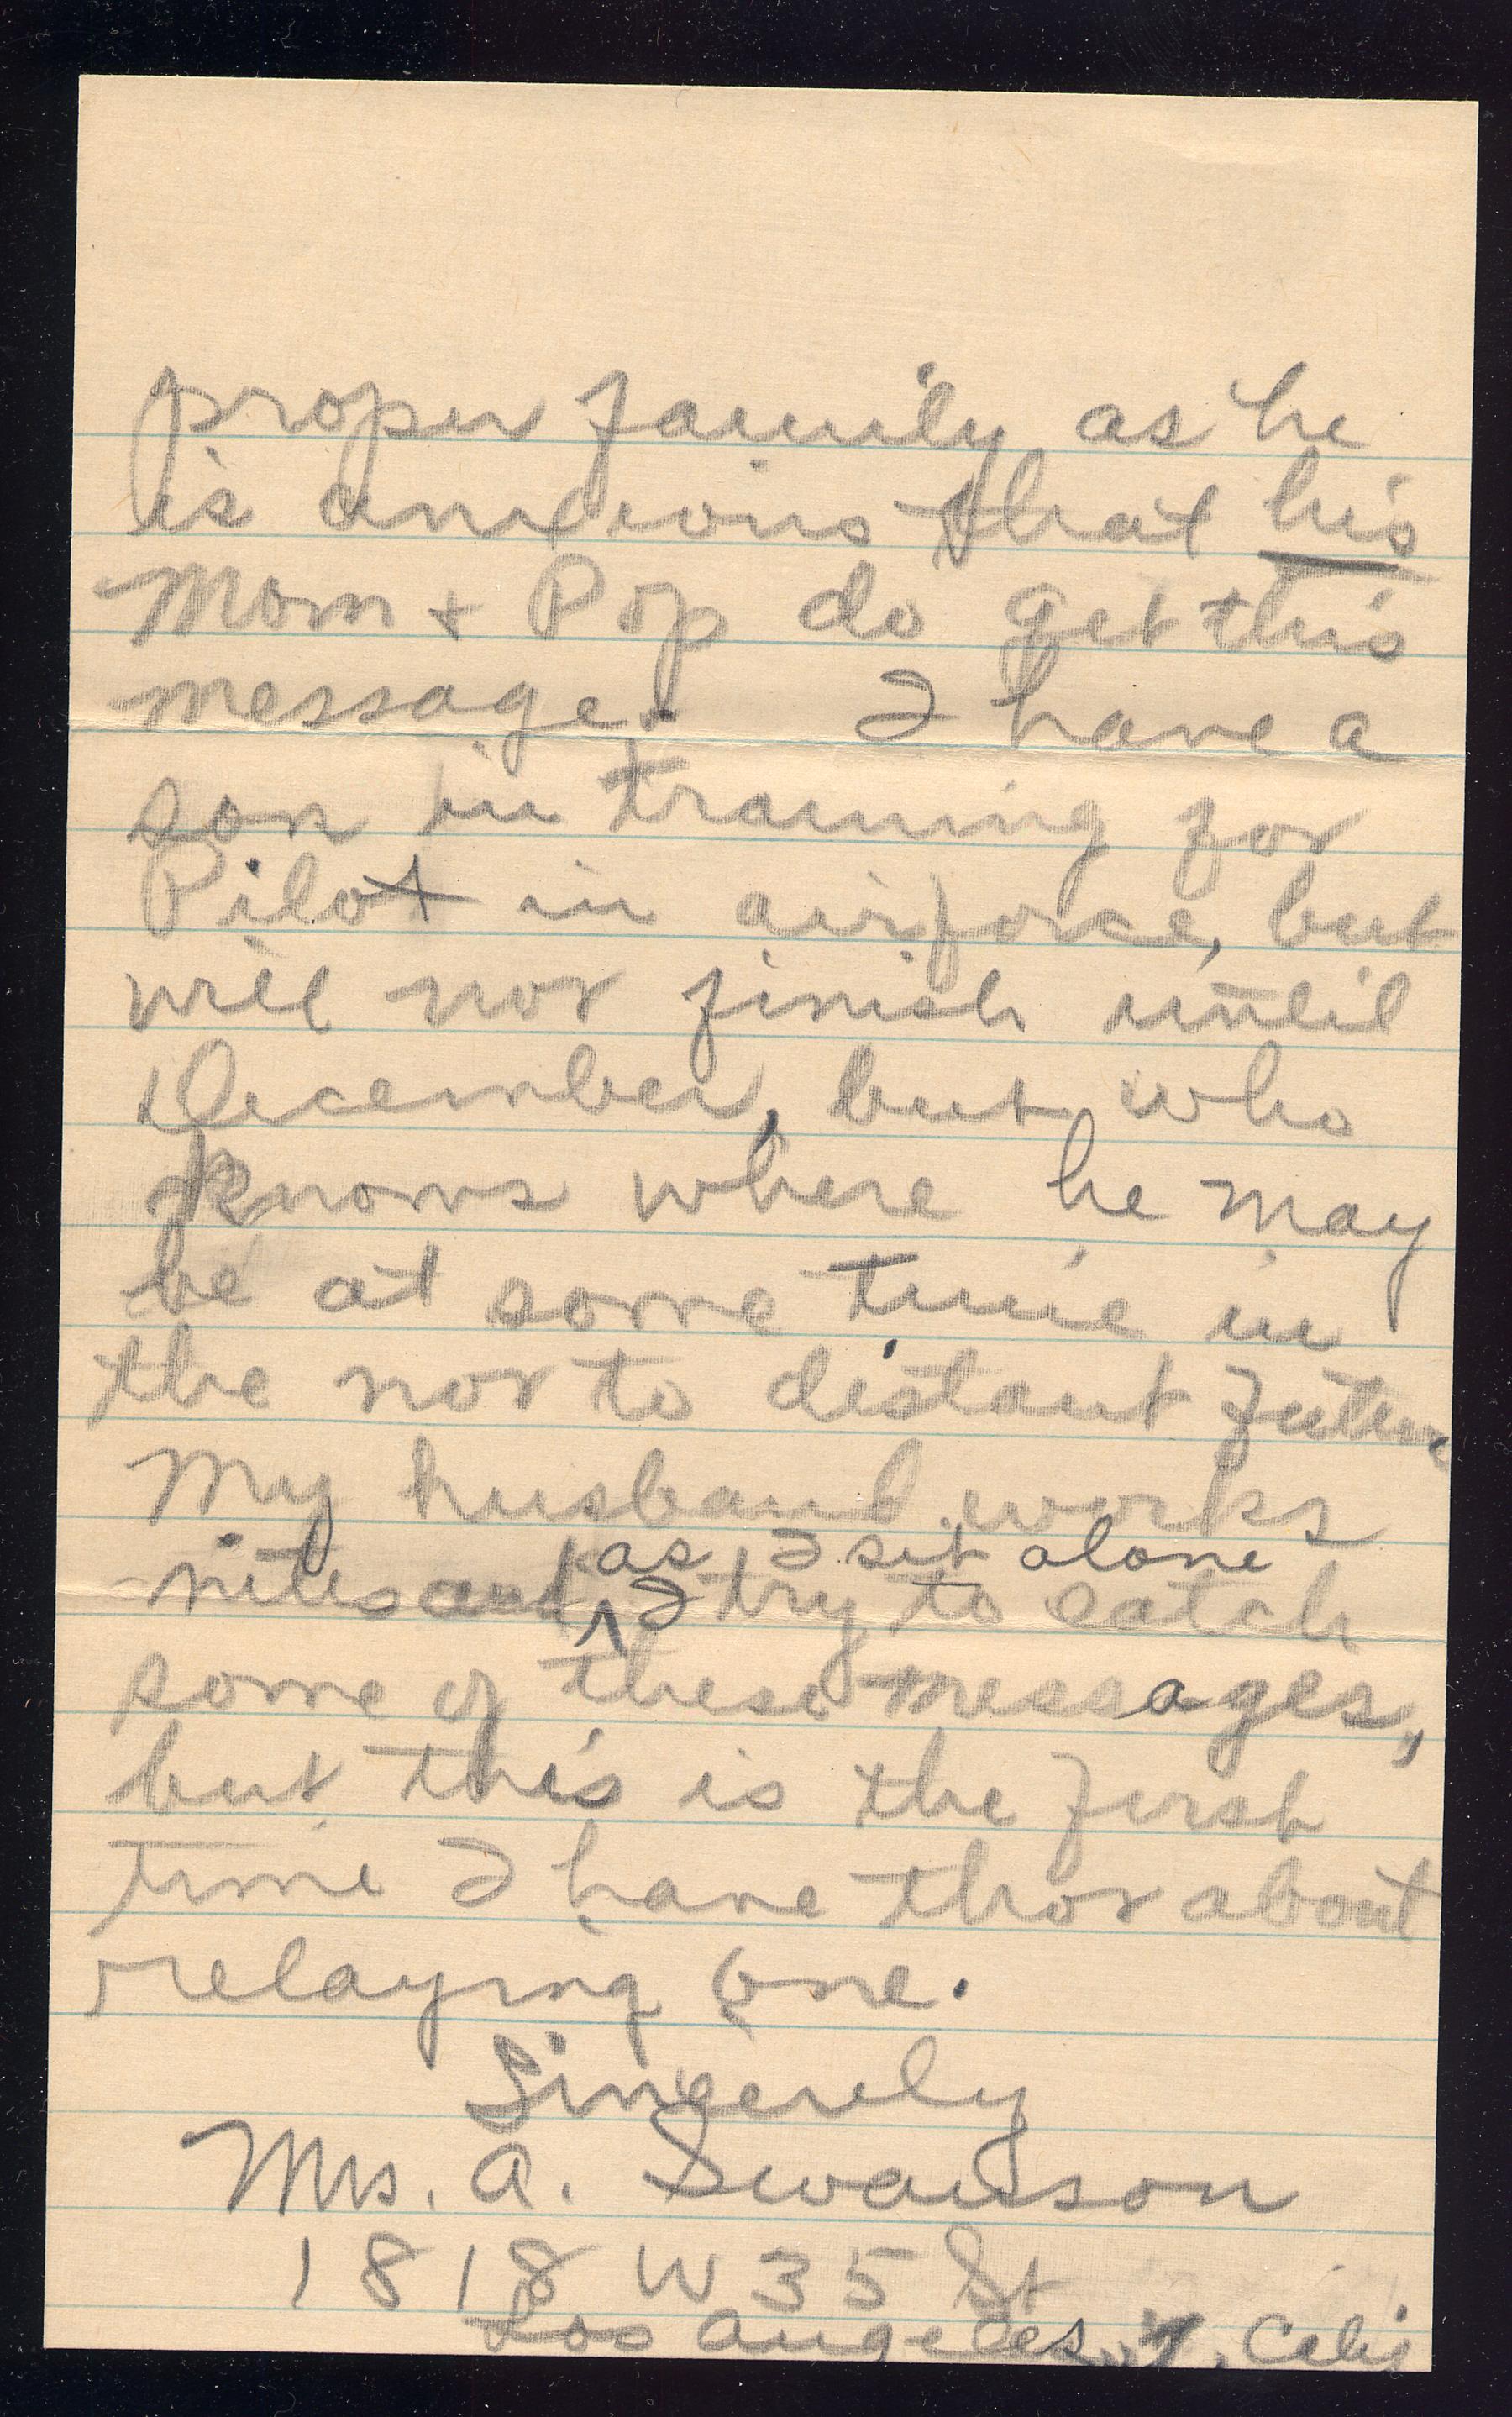 proper family as he
is anxious that his
Mom + Pop do get this
message. I have a
son in training for
Pilot in airforce, but
will not finish until
December, but who
knows where he may
be at some time in
the not to distant future
My husband works
as I sit alone
nites and I try to catch
some of these messages,
but this is the first
time I have thot about
relaying one.
Sincerely
Mrs. A. Swanson
1818 W 35 St
Los Angeles, Calif